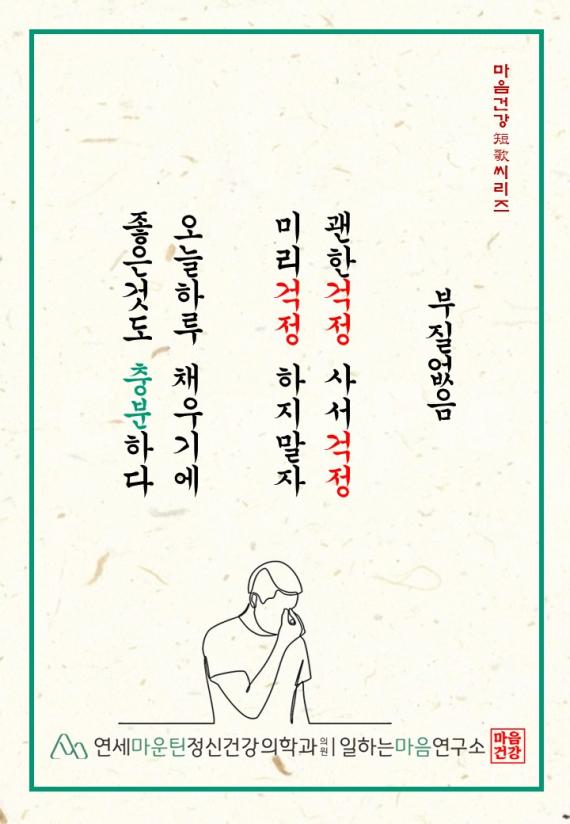 마음건강 短歌 씨리즈
부질없음
괜한걱정 사서걱정
미리걱정 하지말자
오늘하루 채우기에
좋은것도 충분하다
연세마운틴정신건강의학과의원 | 일하는마음연구소
마음
건강